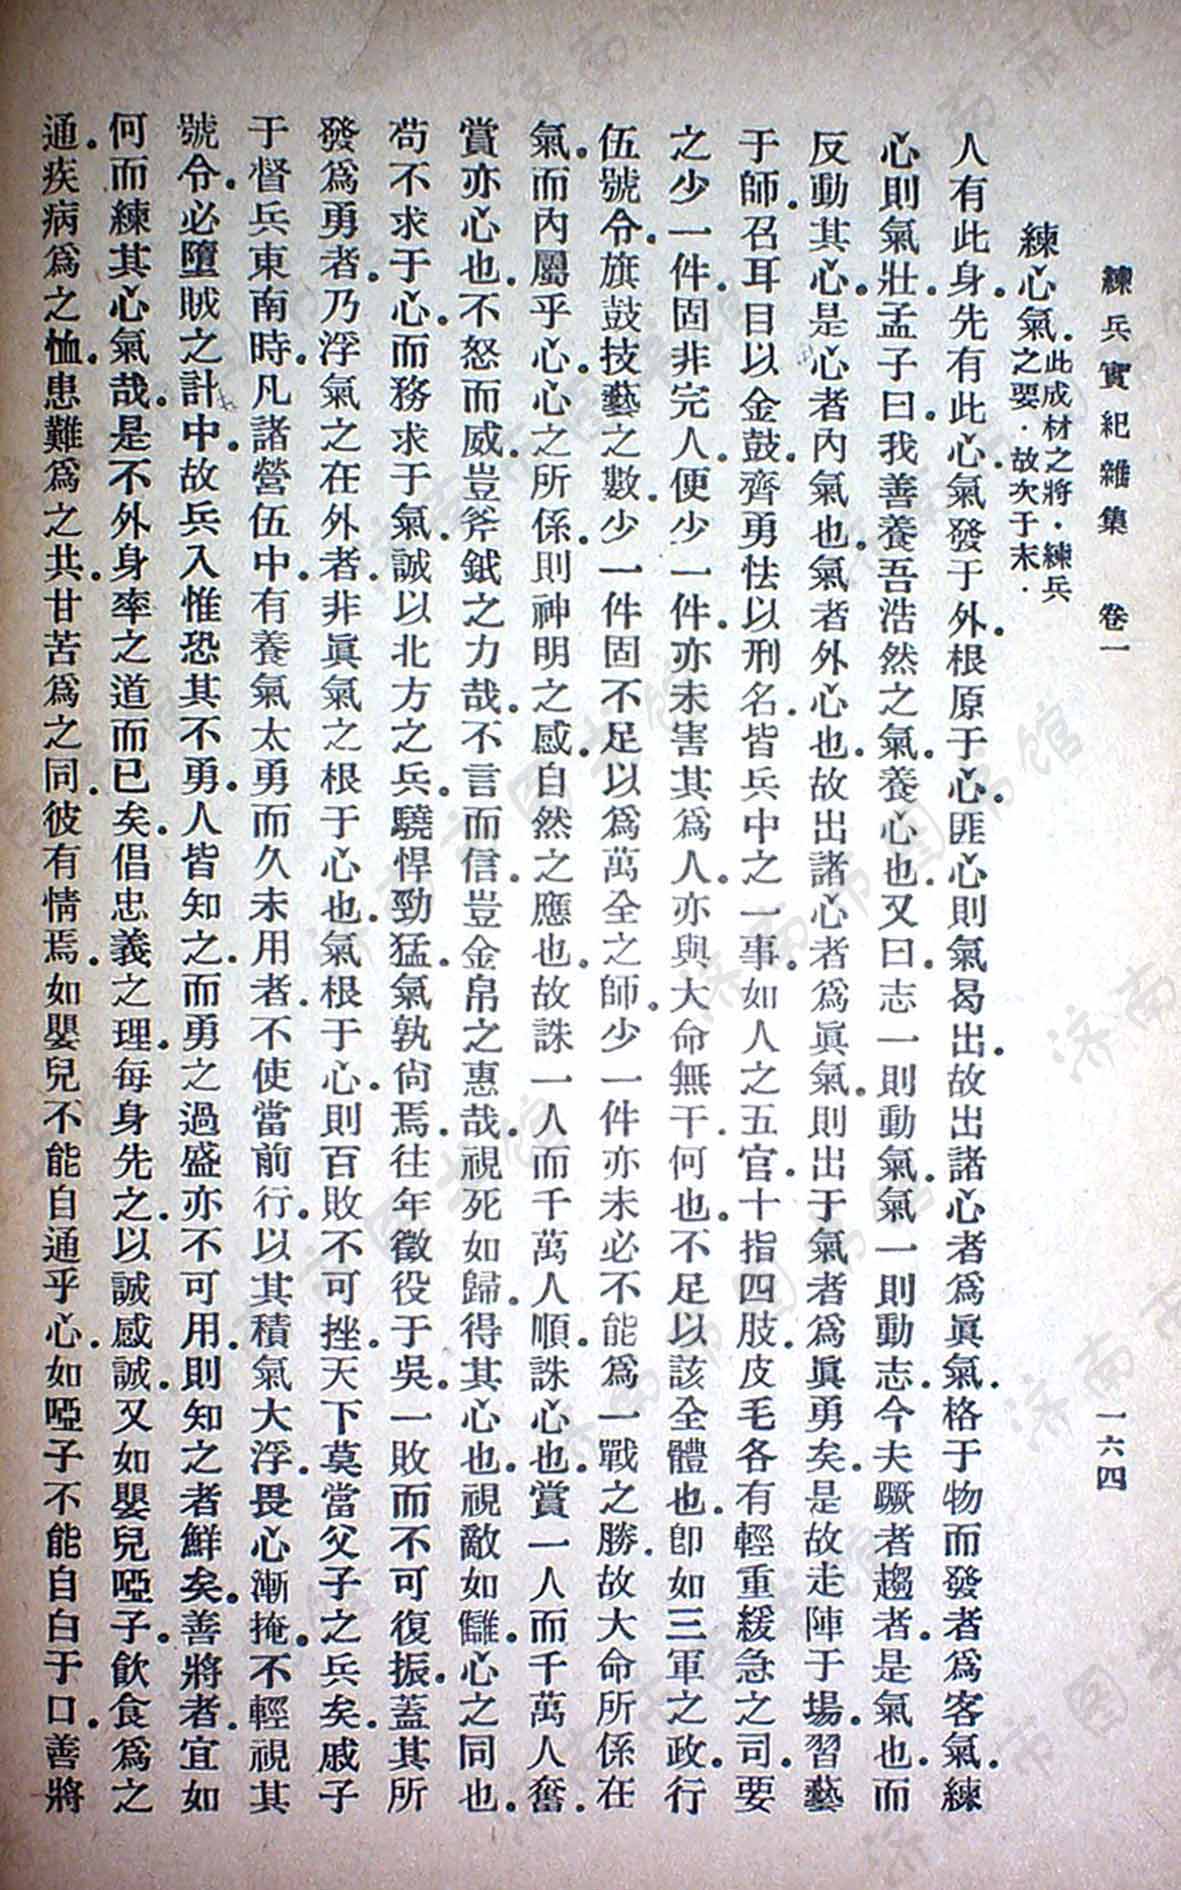 練兵實紀雜集　卷一　一六四
練心氣。此成材之將．練兵之要．故次于末．
人有此身。先有此心。氣發于外。根原于心。匪心則氣曷出。故出諸心者爲眞氣。格于物而發者爲客氣。練
心則氣壯。孟子曰。我善養吾浩然之氣。養心也。又曰。志一則動氣。氣一則動志。今夫蹶者趨者。是氣也。而
反動其心。是心者內氣也。氣者外心也。故出諸心者爲眞氣。則出于氣者爲眞勇矣。是故走陣于場。習藝
于師。召耳目以金鼓。齊勇怯以刑名。皆兵中之一事。如人之五官。十指四肢。皮毛各有輕重緩急之司。要
之少一件。固非完人。便少一件。亦未害其爲人。亦與大命無干。何也。不足以該全體也。卽如三軍之政。行
伍號令。旗鼓技藝之數。少一件固不足以爲萬全之師。少一件亦未必不能爲一戰之勝。故大命所係在
氣。而內屬乎心。心之所係。則神明之感。自然之應也。故誅一人而千萬人順。誅心也。賞一人而千萬人奮。
賞亦心也。不怒而威。豈斧鉞之力哉。不言而信。豈金帛之惠哉。視死如歸。得其心也。視敵如讎。心之同也。
苟不求于心。而務求于氣。誠以北方之兵。驍悍勁猛。氣孰尙焉。往年徵役于吳。一敗而不可復振。蓋其所
發爲勇者。乃浮氣之在外者。非眞氣之根于心也。氣根于心。則百敗不可挫。天下莫當父子之兵矣。戚子
于督兵東南時。凡諸營伍中。有養氣太勇而久未用者。不使當前行。以其積氣大浮。畏心漸掩。不輕視其
號令。必墮賊之計中。故兵入惟恐其不勇。人皆知之。而勇之過盛亦不可用。則知之者鮮矣。善將者。宜如
何而練其心氣哉。是不外身率之道而已矣。倡忠義之理。每身先之。以誠感誠。又如嬰兒啞子。飲食爲之
通。疾病爲之恤。患難爲之共。甘苦爲之同。彼有情焉。如嬰兒不能自通乎心。如啞子不能自白于口。善將